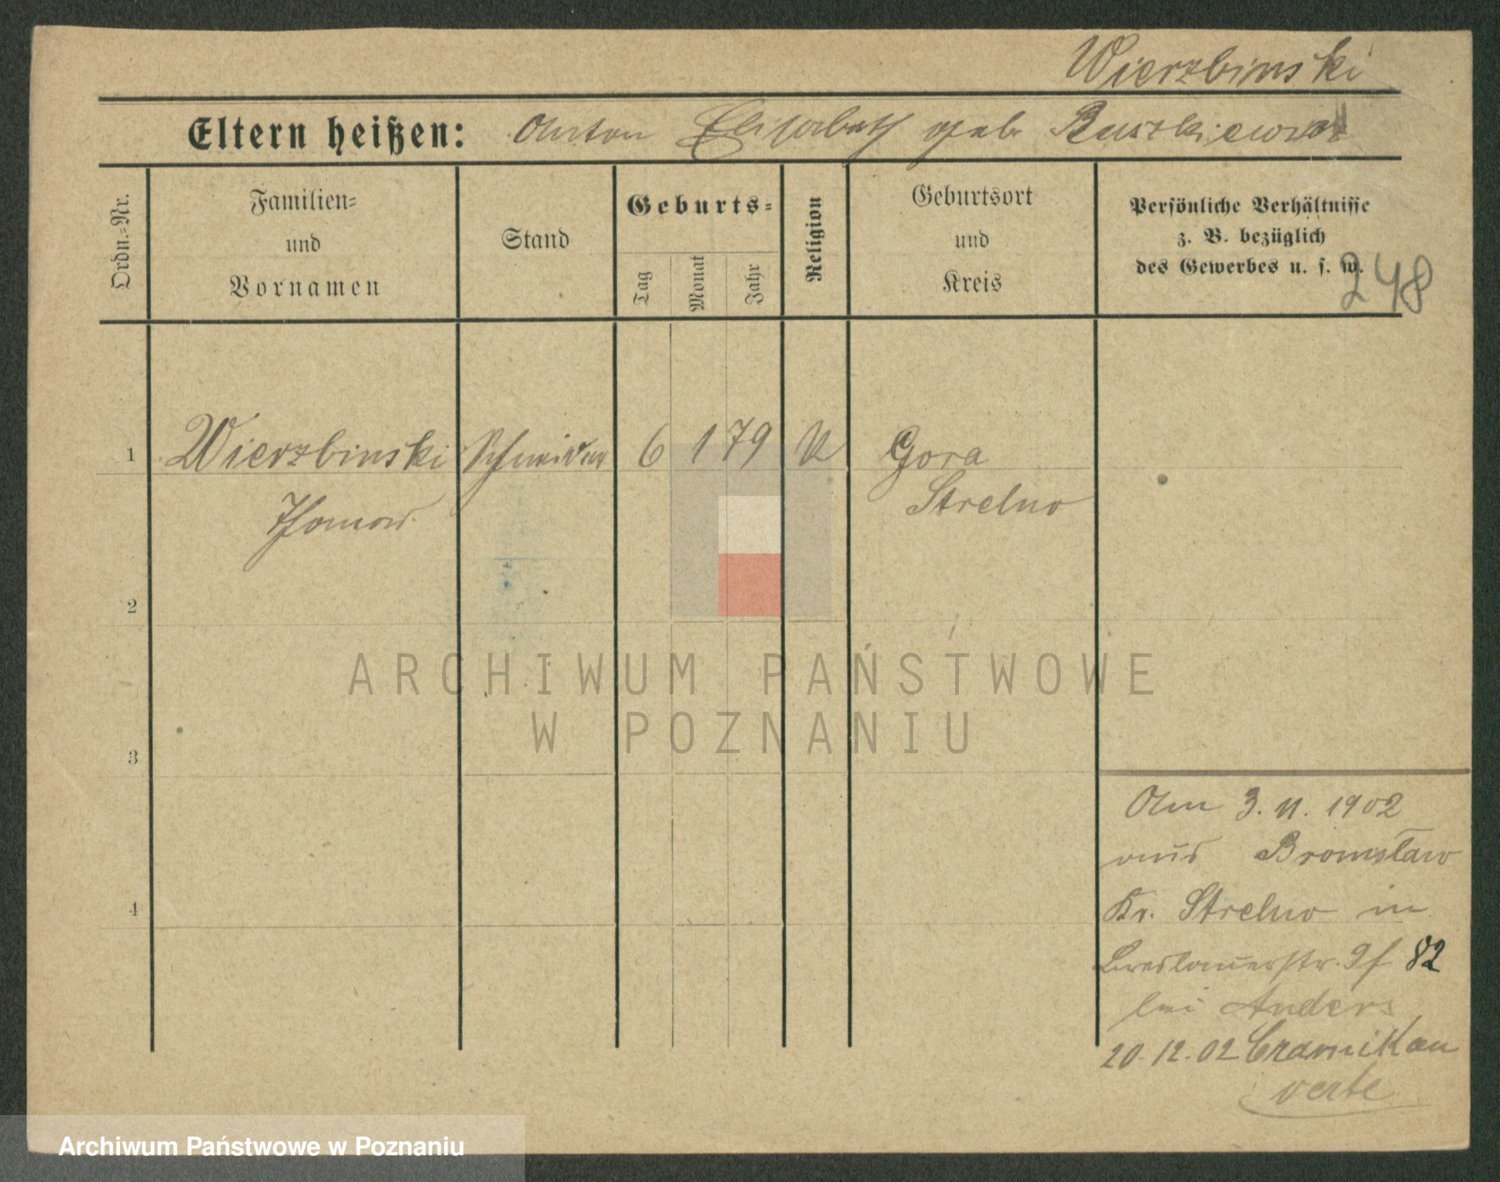 Wierzbinski
Eltern heißen: Anton Elisabeth geb.
Ordn.-Nr.
Familien-
und
Vornamen
Stand
Geburts-
Tag
Monat
Jahr
Religion
Geburtsort
und
Kreis
Persönliche Verhältnisse
z. B. bezüglich
des Gewerbes u. s. w.
248
1 Wierzbinski Schneider 6 1 79 K Gora
Thomas Strelno
2
3
4
Am 3. 11. 1902
aus Bronislaw
Kr. Strelno in
Breslauerstr. 9 82
bei Anders
20.12.02 Czarnikau
verte
ARCHIWUM PAŃSTWOWE
W POZNANIU
Archiwum Państwowe w Poznaniu